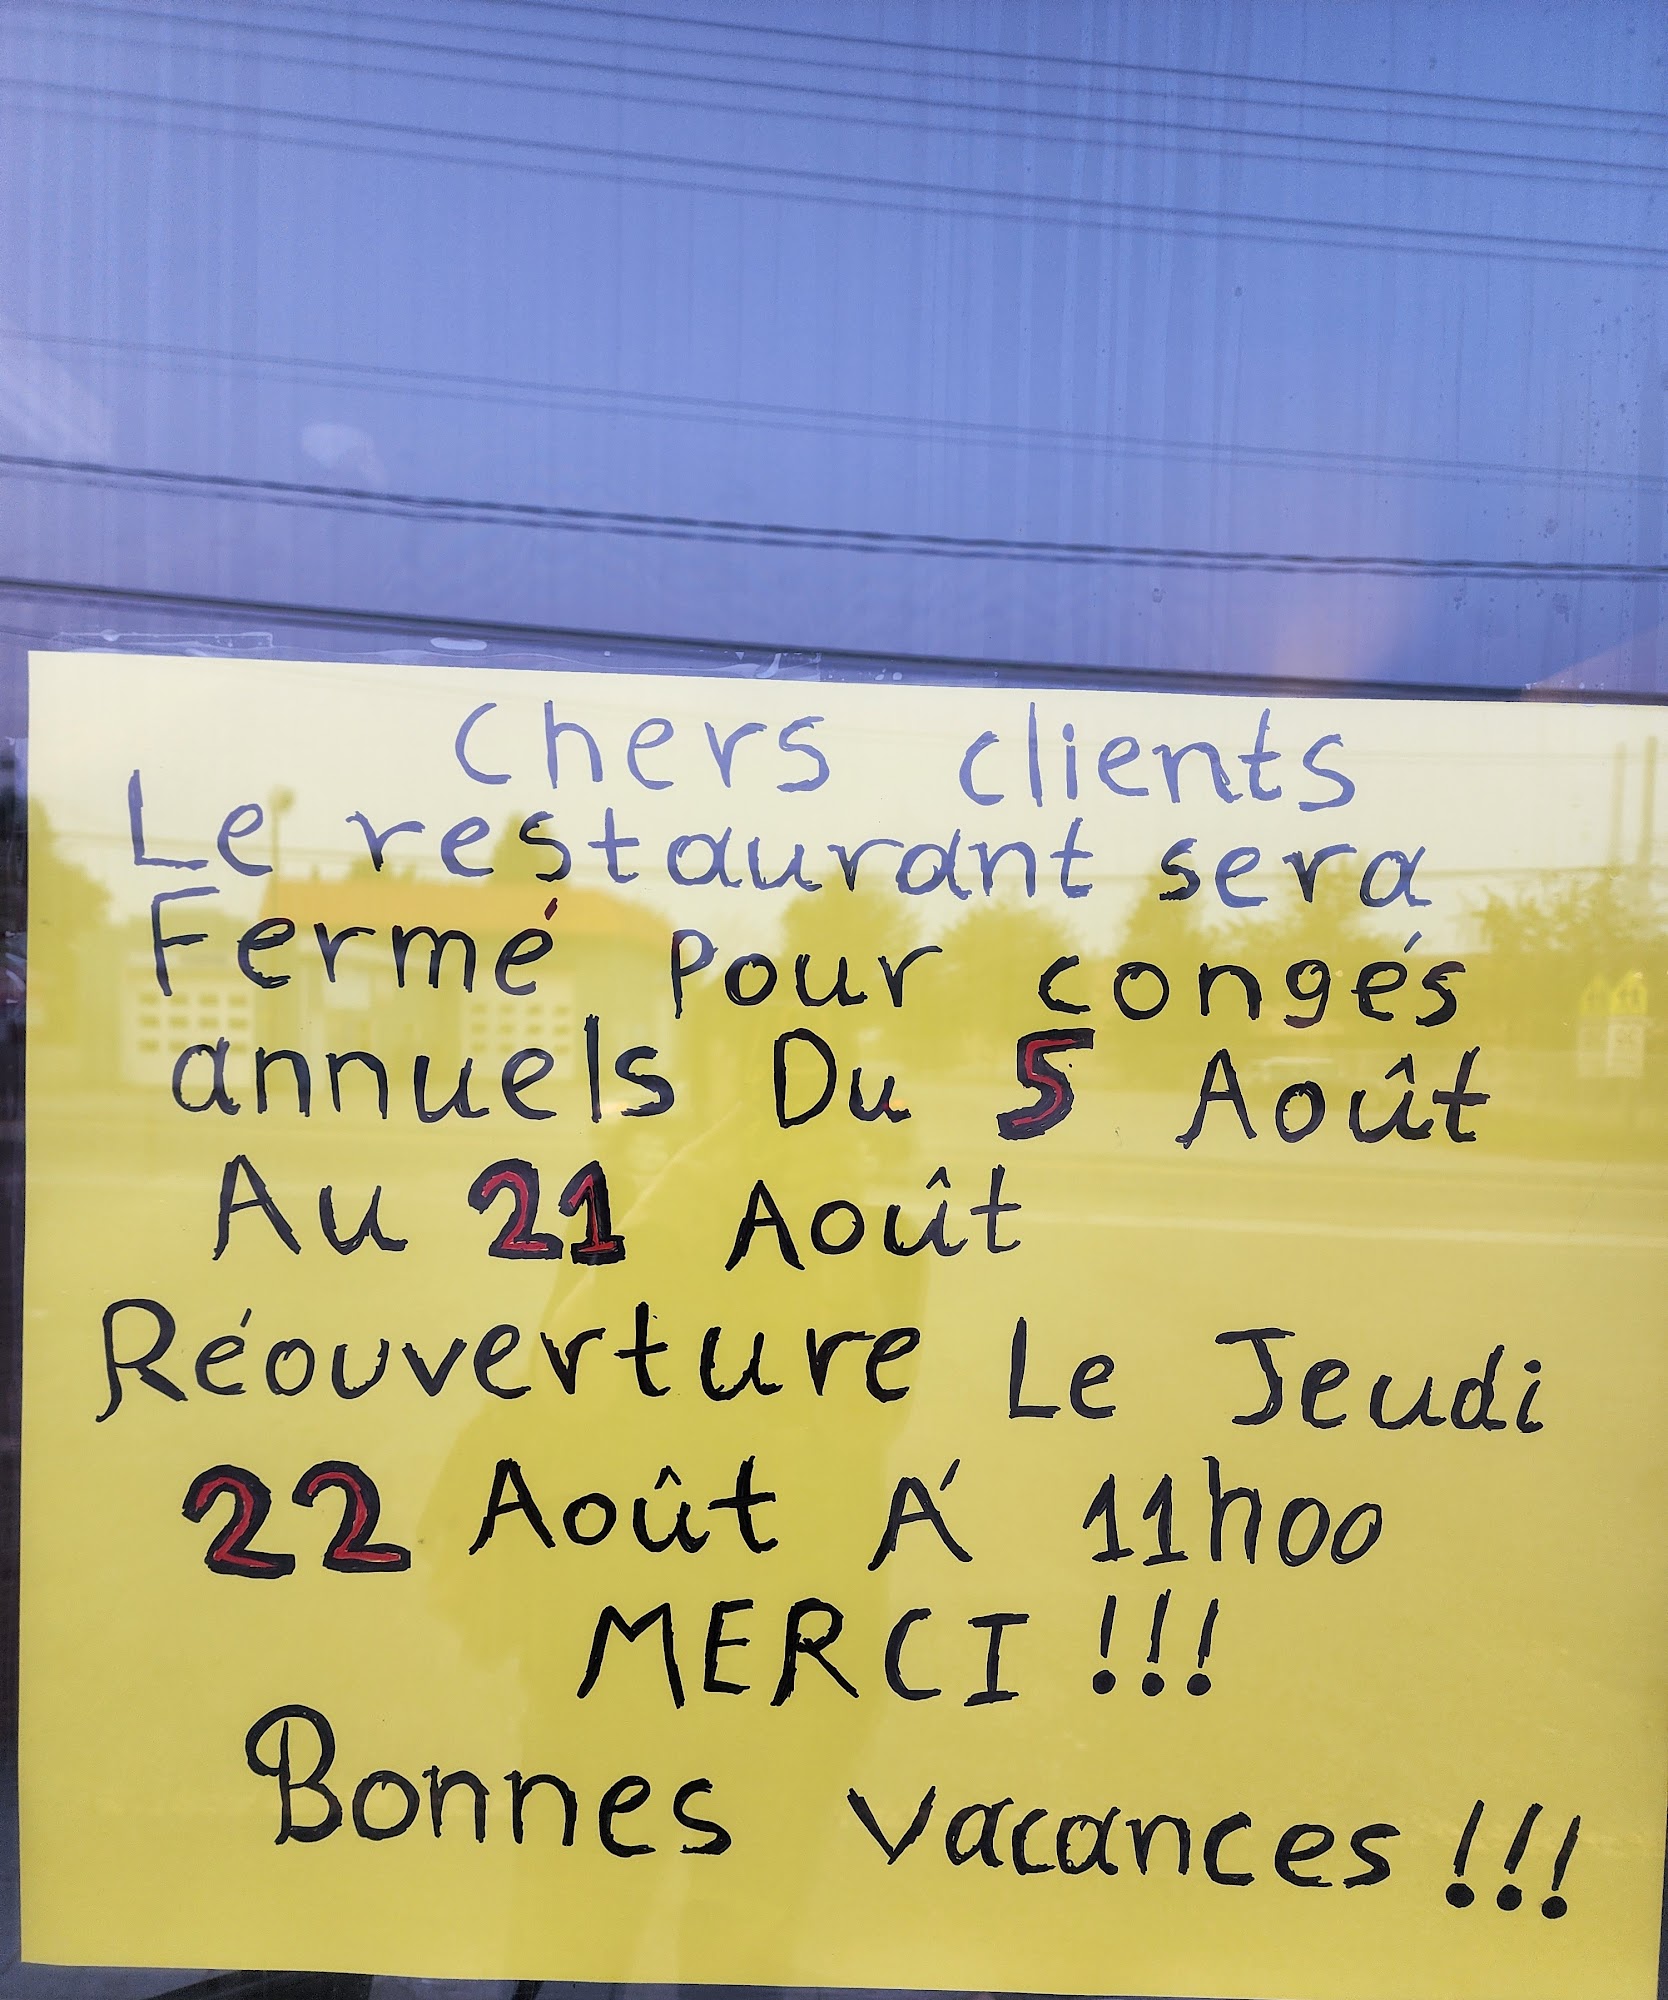 Chers clients
Le restaurant sera
Fermé Pour congés
annuels Du 5 Août
Au 21 Août
Réouverture Le Jeudi
22 Août Á 11h00
MERCI !!!
Bonnes vacances !!!